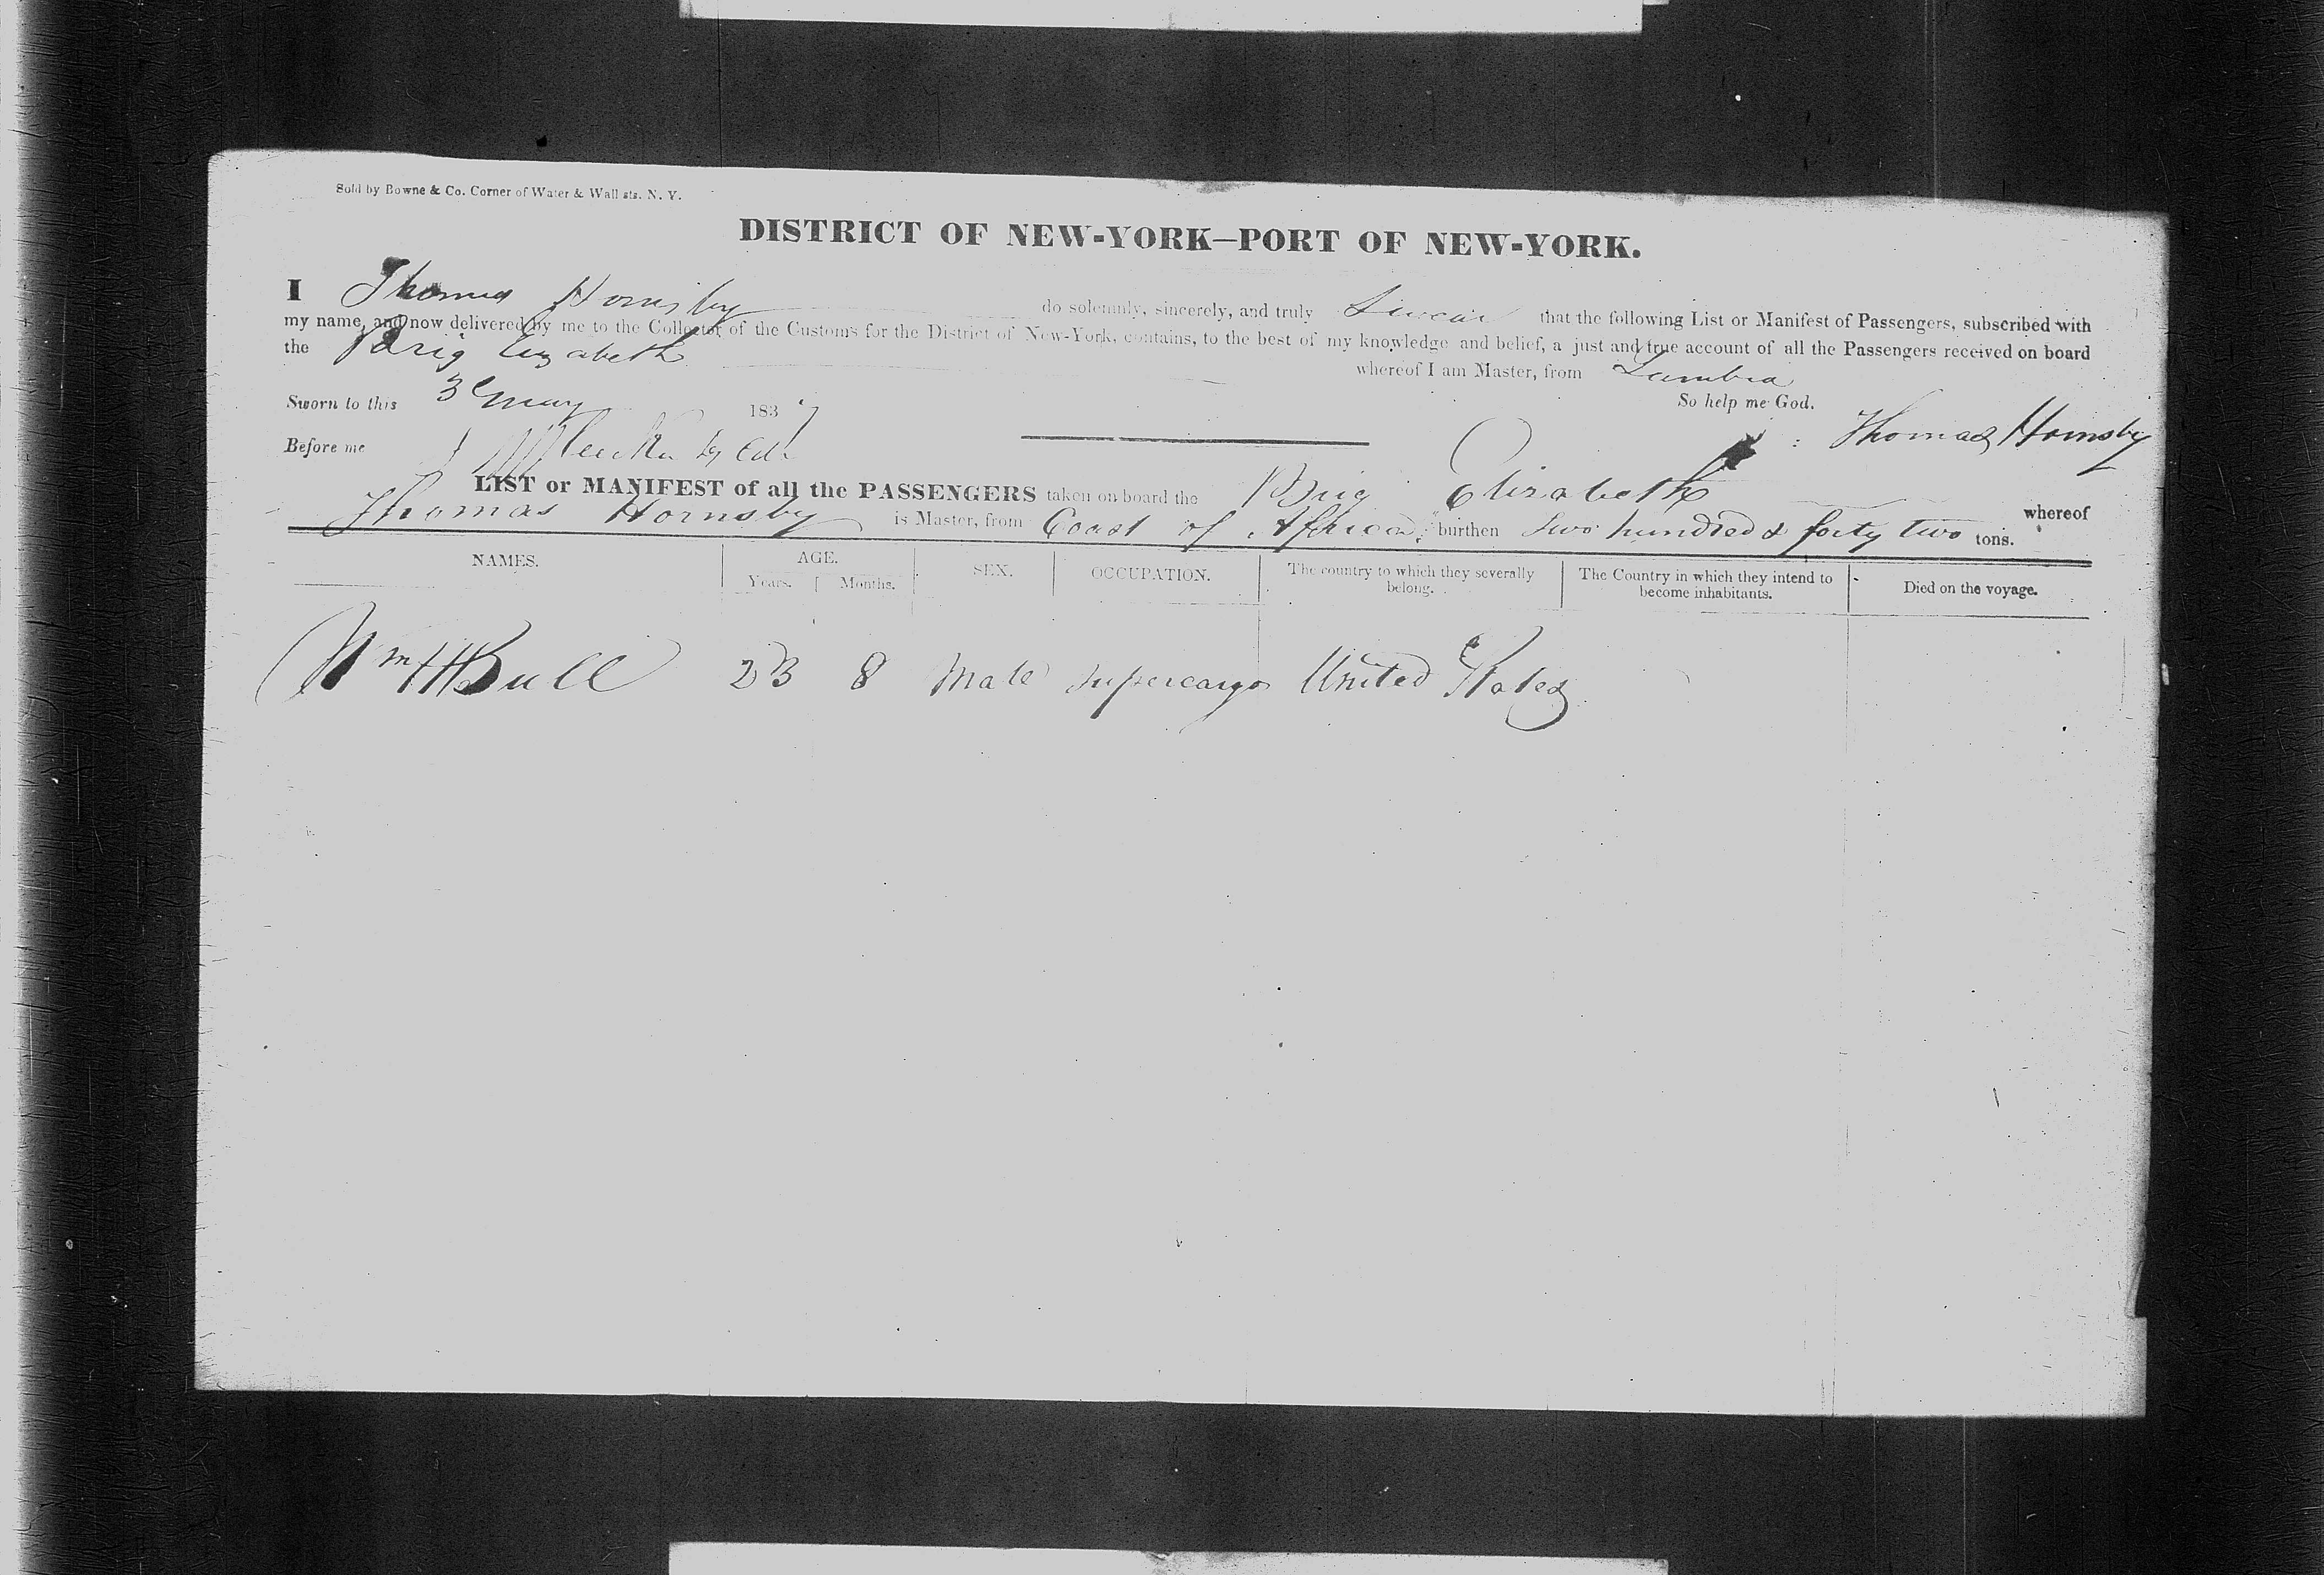 Sold by Bowne & Co. Corner of Water & Wall sts. N. Y.
DISTRICT OF NEW-YORK—PORT OF NEW-YORK.
I Thomas Hornsby do solemnly, sincerely, and truly Swear that the following List or Manifest of Passengers, subscribed with
my name, and now delivered by me to the Collector of the Customs for the District of New-York, contains, to the best of my knowledge and belief, a just and true account of all the Passengers received on board
the Brig Elizabeth whereof I am Master, from
Sworn to this 3d May 1837 So help me God.
Before me Thomas Hornsby
LIST or MANIFEST of all the PASSENGERS taken on board the Brig Elizabeth whereof
Thomas Hornsby is Master, from Coast of Africa, burthen Two hundred & forty two tons.
NAMES. AGE. SEX. OCCUPATION. The country to which they severally belong. The Country in which they intend to become inhabitants. Died on the voyage.
Years. Months.
Wm H Bull 23 8 Male Supercargo United States